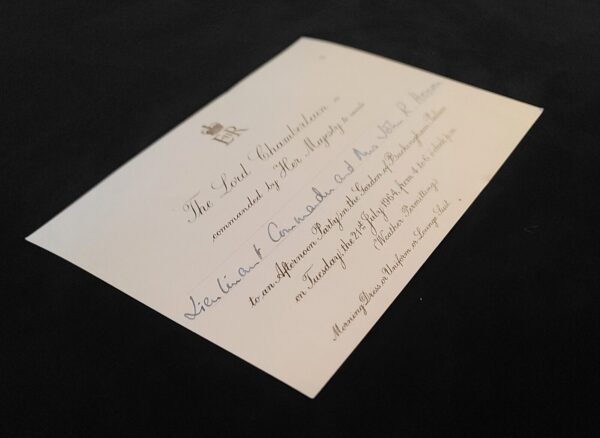 EIIR
The Lord Chamberlain is
commanded by Her Majesty to invite
Lieutenant Commander and Mrs John R.
to an Afternoon Party in the Garden of Buckingham Palace
on Tuesday the 21st July 1964, from 4 to 6 o'clock p.m.
(Weather Permitting)
Morning Dress or Uniform or Lounge Suit